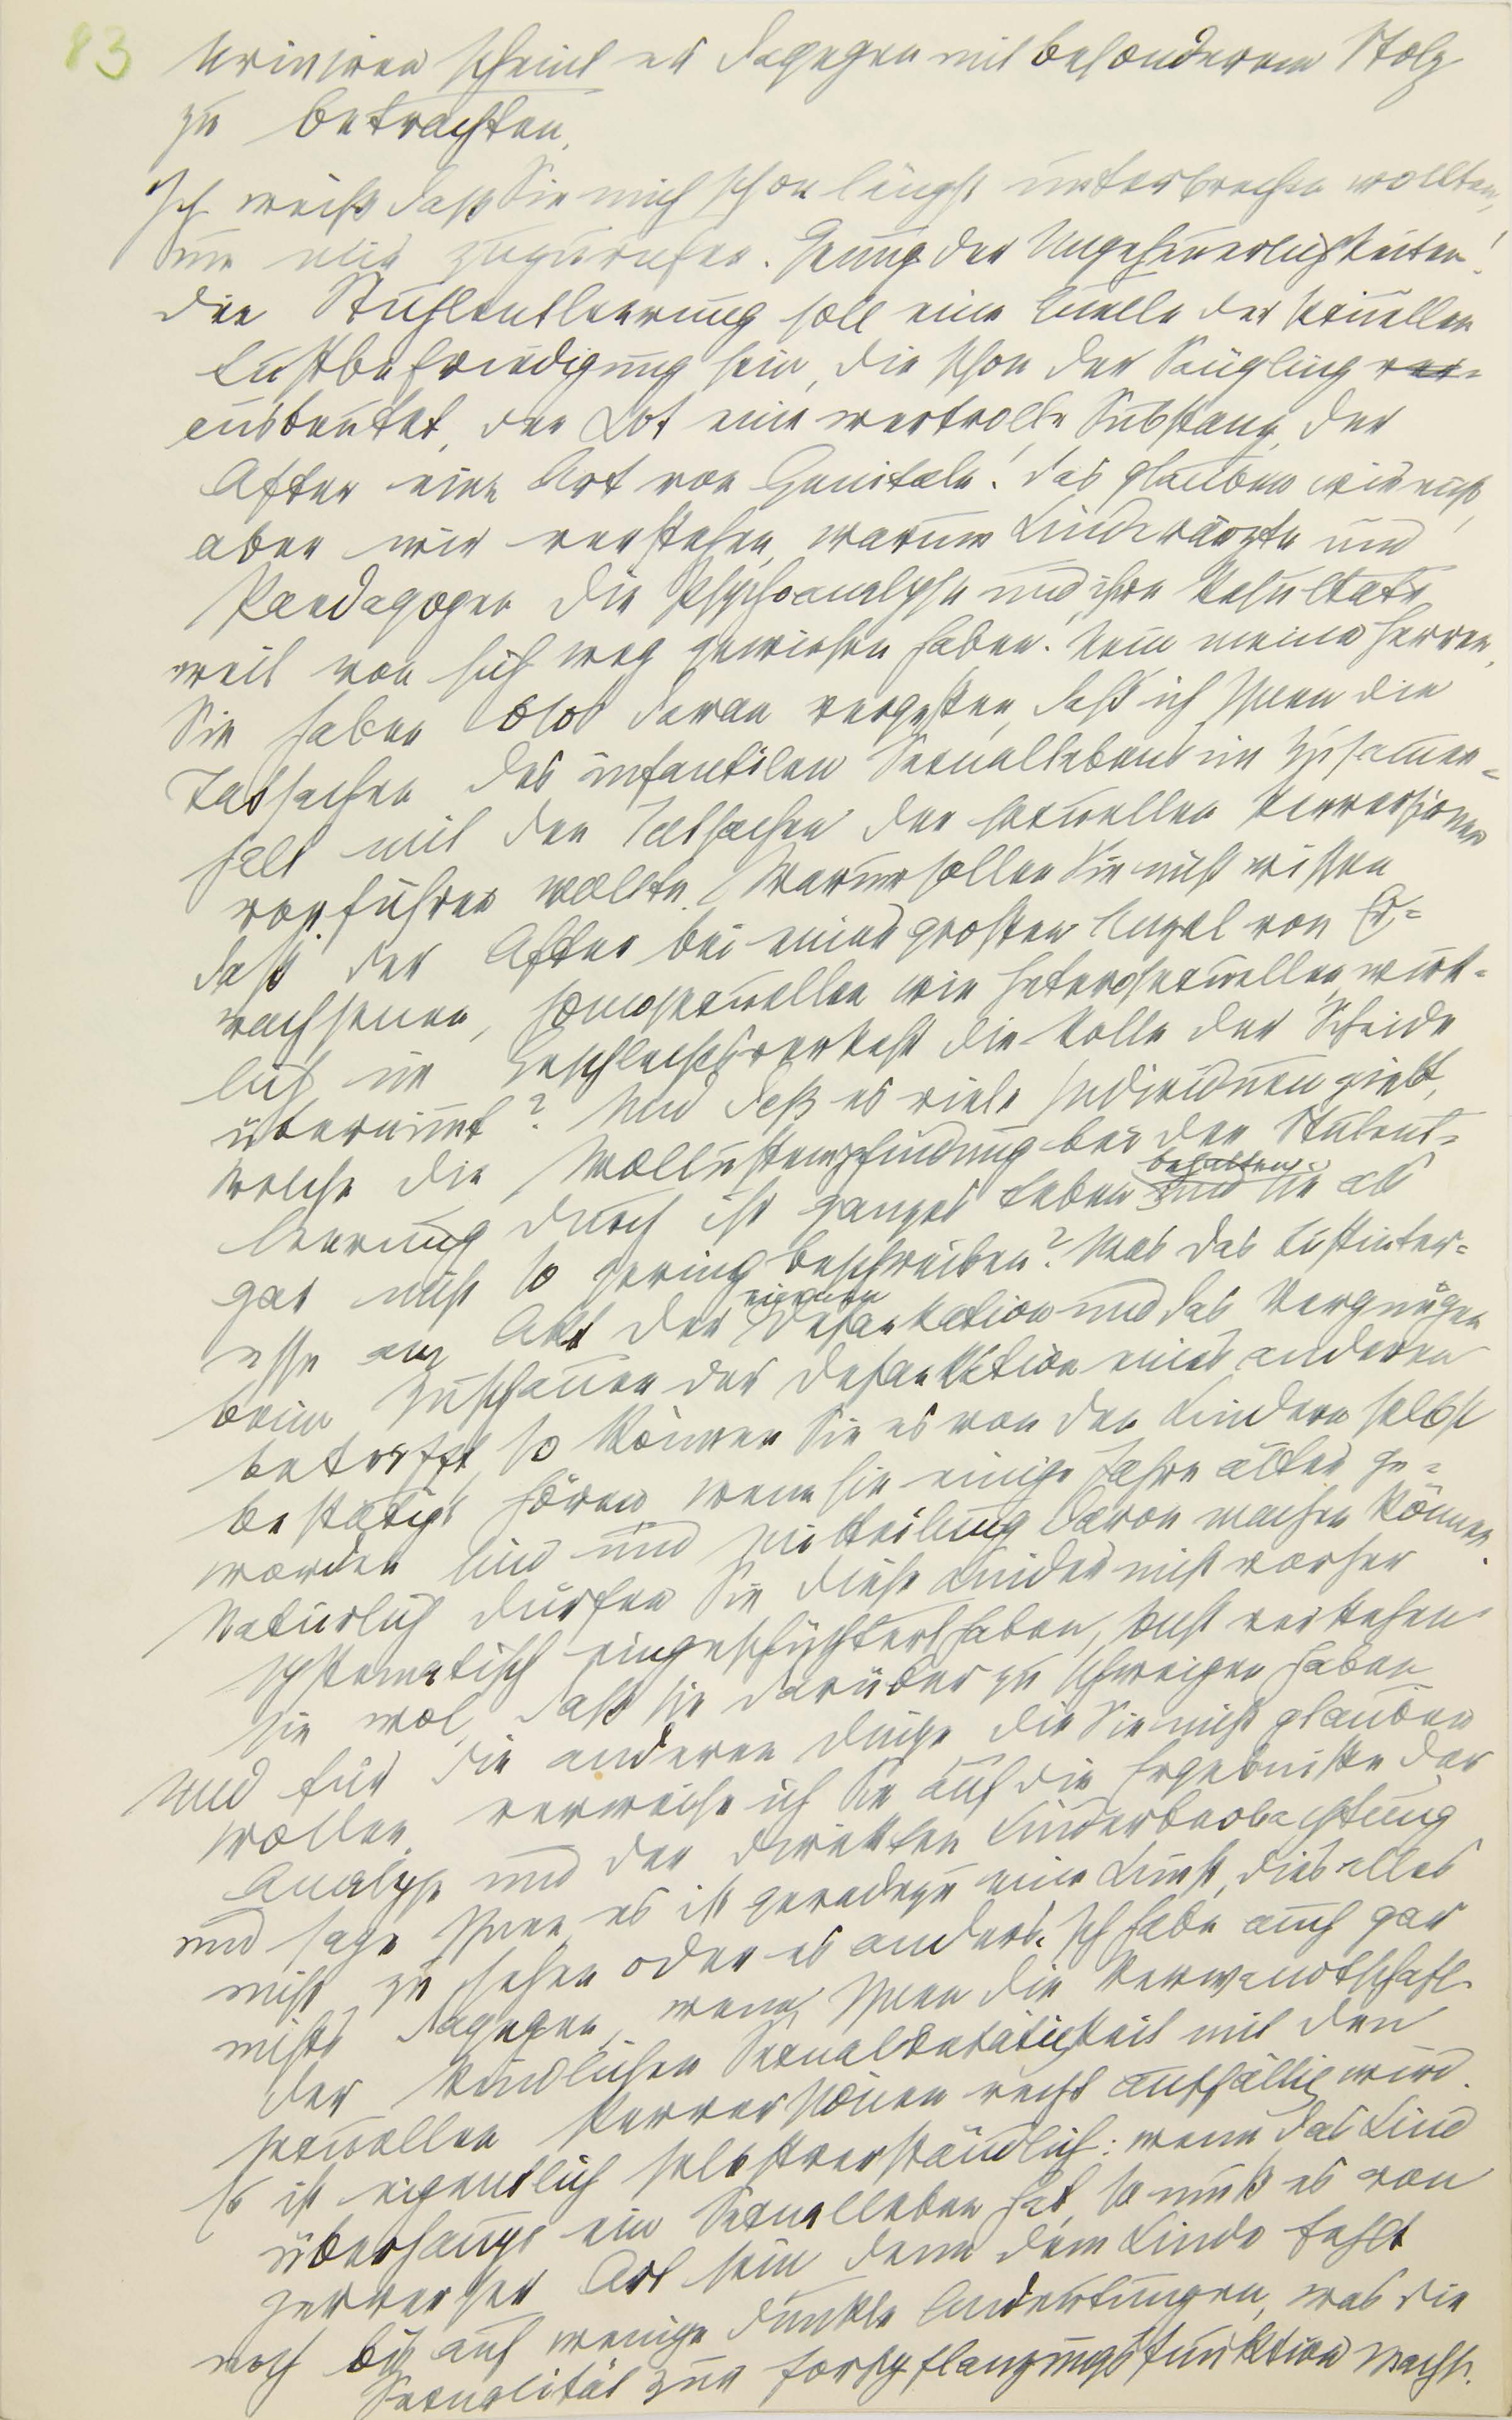 83
Uriniren scheint es dagegen mit besonderem Stolz
zu betrachten.
Ich weiß daß Sie mich schon längst unterbrechen wollten,
um mir zuzurufen: Genug der Ungeheuerlichkeiten!
die Stuhlentleerung soll eine Quelle der sexuellen
Lustbefriedigung sein, die schon der Säugling ver-
ausbeutet, der Kot eine wertvolle Substanz, der
After eine Art von Genitale! Das glauben wir nicht,
aber wir verstehen, warum Kinderärzte und
Paedagogen die Psychoanalyse und ihre Resultate
weit von sich weg gewiesen haben. Nein meine Herren,
Sie haben blos daran vergessen, daß ich Ihnen die
Tatsachen des infantilen Sexuallebens im Zusamen-
halt mit den Tatsachen der sexuellen Perversionen
vorführen wollte. Warum sollen Sie nicht wissen
daß der After bei einer großen Anzal von Er-
wachsenen, homosexuellen wie heterosexuellen, wirk-
lich im Geschlechtsverkehr die Rolle der Scheide
übernimt? Und daß es viele Individuen giebt,
welche die Wollustempfindung bei der Stulent-
leerung durch ihr ganzes Leben behalten und sie als
gar nicht so gering beschreiben? Was das Lustinter-
esse am Akt der eigenen Defaekation und das Vergnügen
beim Zuschauen der Defaekation eines anderen
betrifft, so können Sie es von den Kindern selbst
bestätigt hören, wenn sie einige Jahre älter ge-
worden sind und Mitteilung davon machen können.
Natürlich dürfen Sie diese Kinder nicht vorher
systematisch eingeschüchtert haben, sonst verstehen
sie wol, daß sie darüber zu schweigen haben
Und für die anderen Dinge die Sie nicht glauben
wollen, verweise ich Sie auf die Ergebnisse der
Analyse und der direkten Kinderbeobachtung
und sage Ihnen, es ist geradezu eine Kunst, dies alles
nicht zu sehen oder es anders. Ich habe auch gar
nichts dagegen, wenn Ihnen die Verwandtschaft
der kindlichen Sexualbetätigkeit mit den
sexuellen Perversionen recht auffällig wird.
Es ist eigentlich selbstverständlich: wenn das Kind
überhaupt ein Sexualleben hat, so muß es von
perverser Art sein denn dem Kinde fehlt
noch bis auf wenige dunkle Andeutungen, was die
Sexualität zur Fortpflanzungsfunktion macht.